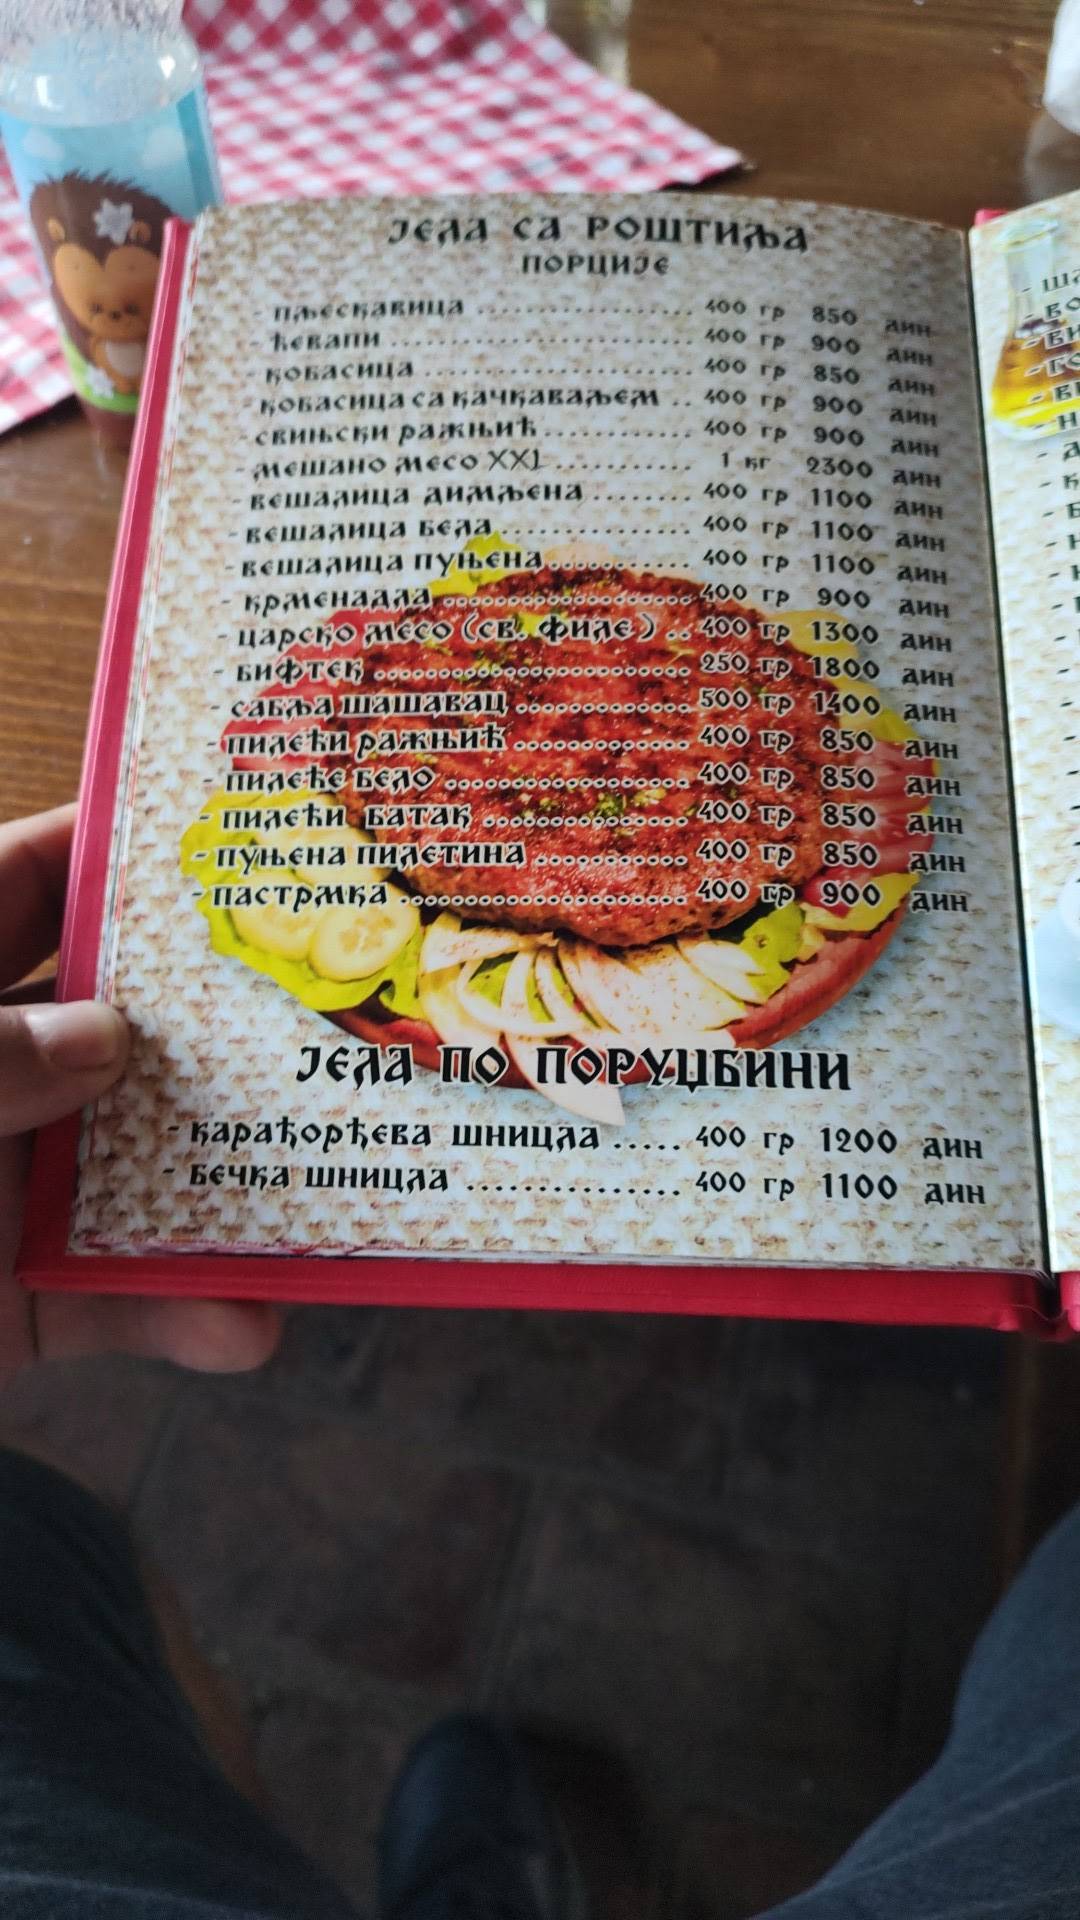 ЈЕЛА СА РОШТИЉА
ПОРЦИЈЕ
- ПЉЕСКАВИЦА .................. 400 ГР 850 ДИН
- ЋЕВАПИ ......................... 400 ГР 900 ДИН
- КОБАСИЦА ...................... 400 ГР 850 ДИН
- КОБАСИЦА СА КАЧКАВАЉЕМ .. 400 ГР 900 ДИН
- СВИЊСКИ РАЖЊИЋ ............ 400 ГР 900 ДИН
- МЕШАНО МЕСО XXL ........... 1 КГ 2300 ДИН
- ВЕШАЛИЦА ДИМЉЕНА ........ 400 ГР 1100 ДИН
- ВЕШАЛИЦА БЕЛА ............... 400 ГР 1100 ДИН
- ВЕШАЛИЦА ПУЊЕНА ........... 400 ГР 1100 ДИН
- КРМЕНАДЛА .................... 400 ГР 900 ДИН
- ЦАРСКО МЕСО (СВ. ФИЛЕ) .. 400 ГР 1300 ДИН
- БИФТЕК ......................... 250 ГР 1800 ДИН
- САБЉА ШАШАВАЦ ............. 500 ГР 1400 ДИН
- ПИЛЕЋИ РАЖЊИЋ ............. 400 ГР 850 ДИН
- ПИЛЕЋЕ БЕЛО .................. 400 ГР 850 ДИН
- ПИЛЕЋИ БАТАК ................ 400 ГР 850 ДИН
- ПУЊЕНА ПИЛЕТИНА ........... 400 ГР 850 ДИН
- ПАСТРМКА ..................... 400 ГР 900 ДИН
ЈЕЛА ПО ПОРУЏБИНИ
- КАРАЂОРЂЕВА ШНИЦЛА ..... 400 ГР 1200 ДИН
- БЕЧКА ШНИЦЛА ............... 400 ГР 1100 ДИН